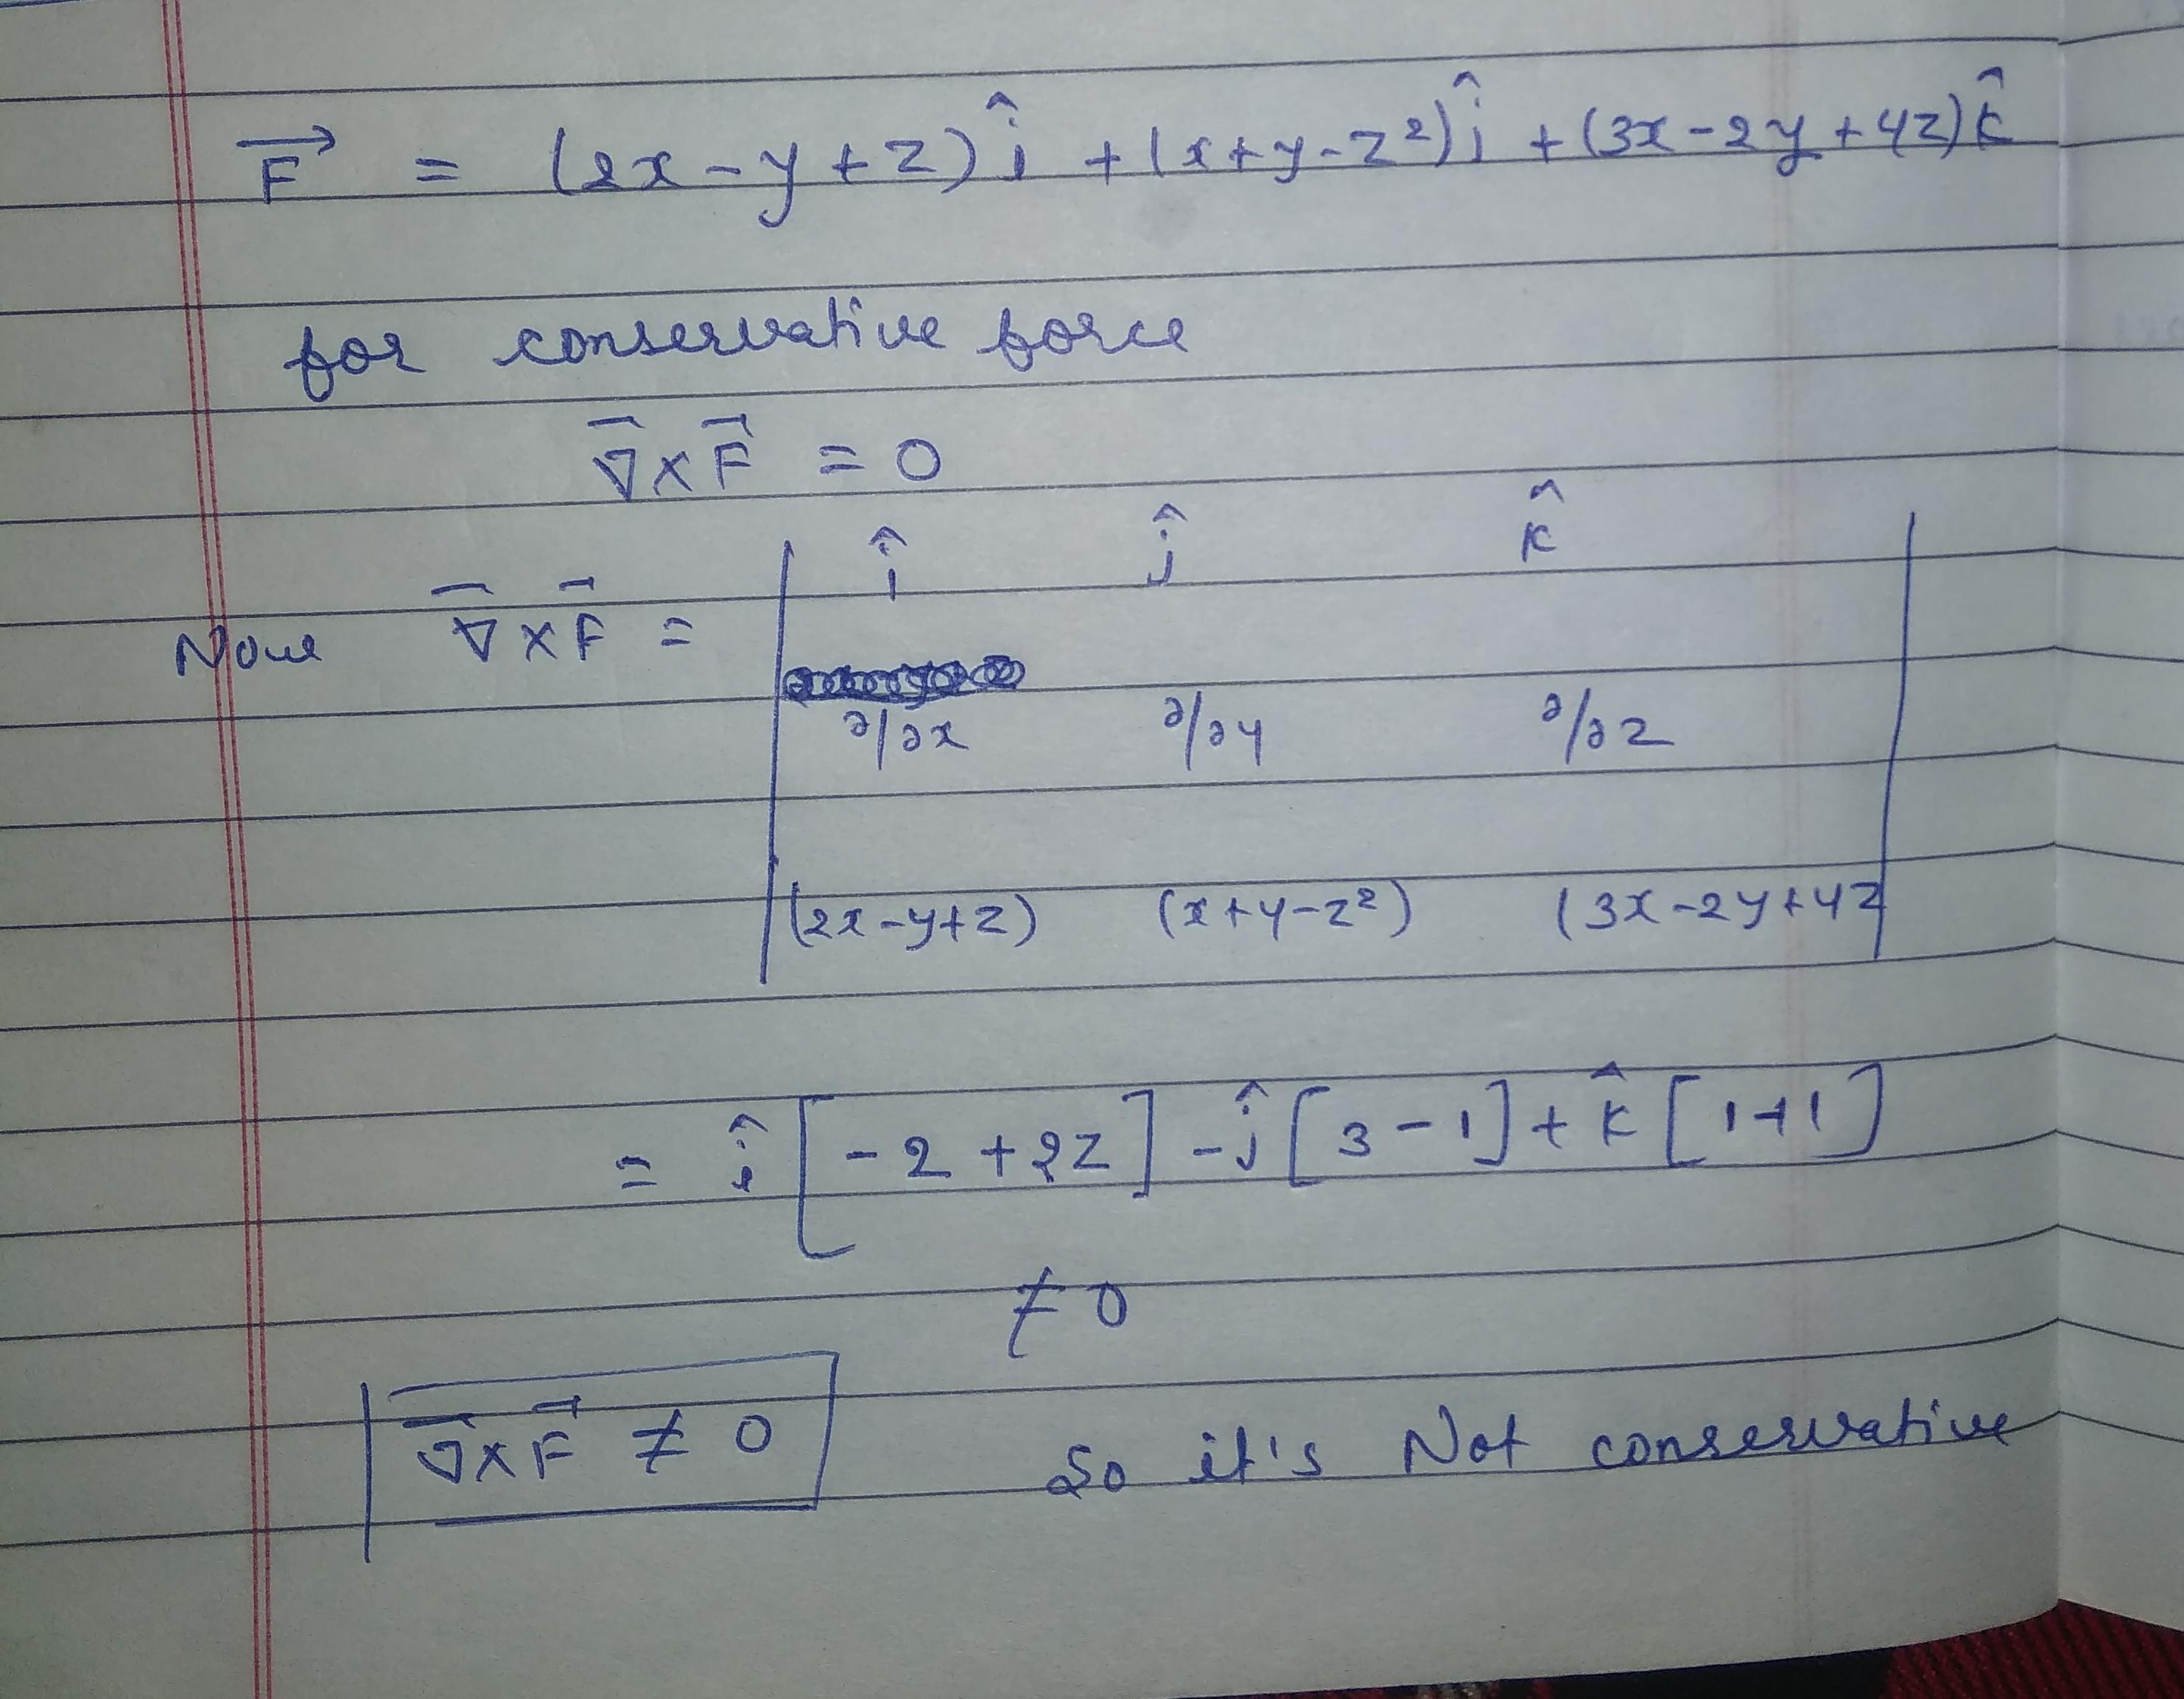 F⃗ = (2x-y+z)î + (x+y-z²)ĵ + (3x-2y+4z)k̂
for conservative force
∇⃗×F⃗ = 0
Now ∇⃗×F⃗ = | î ĵ k̂ |
∂/∂x ∂/∂y ∂/∂z
(2x-y+z) (x+y-z²) (3x-2y+4z
= î[-2+2z] -ĵ[3-1] + k̂[1+1]
≠ 0
∇⃗×F⃗ ≠ 0 So it's Not conservative